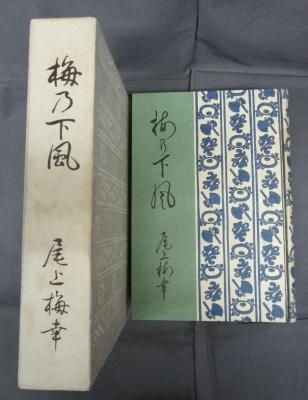 梅乃下風
尾上梅幸
梅乃下風
尾上梅幸